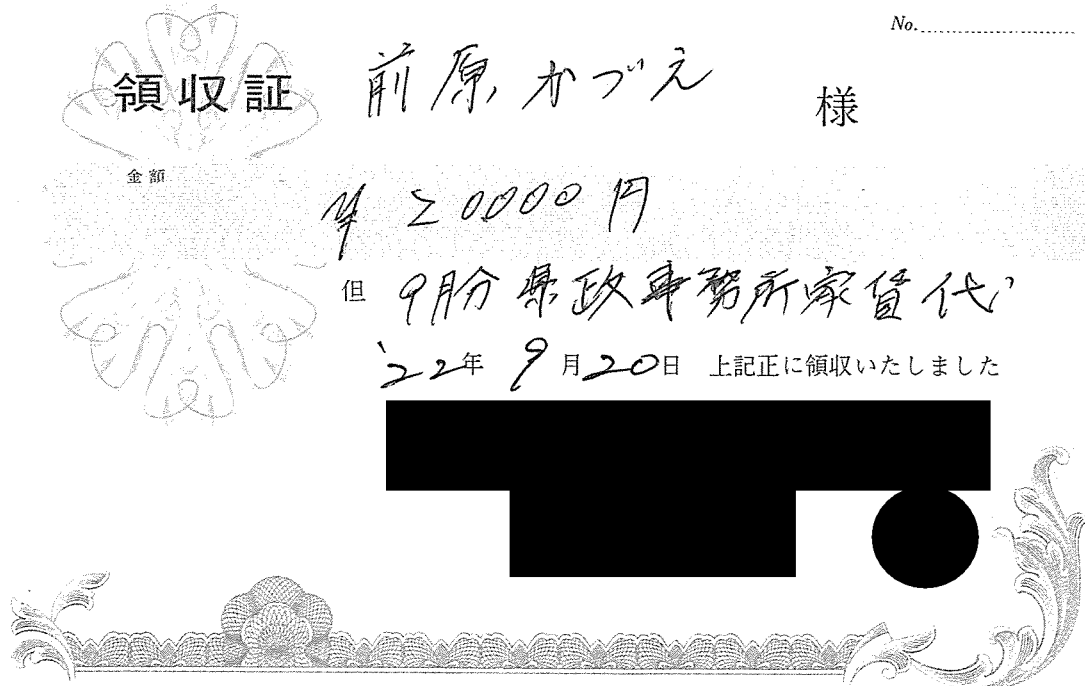 No.
領収証 前原かづえ 様
金額
¥20000円
但 9月分県政事務所家賃代
'22年 9月20日 上記正に領収いたしました